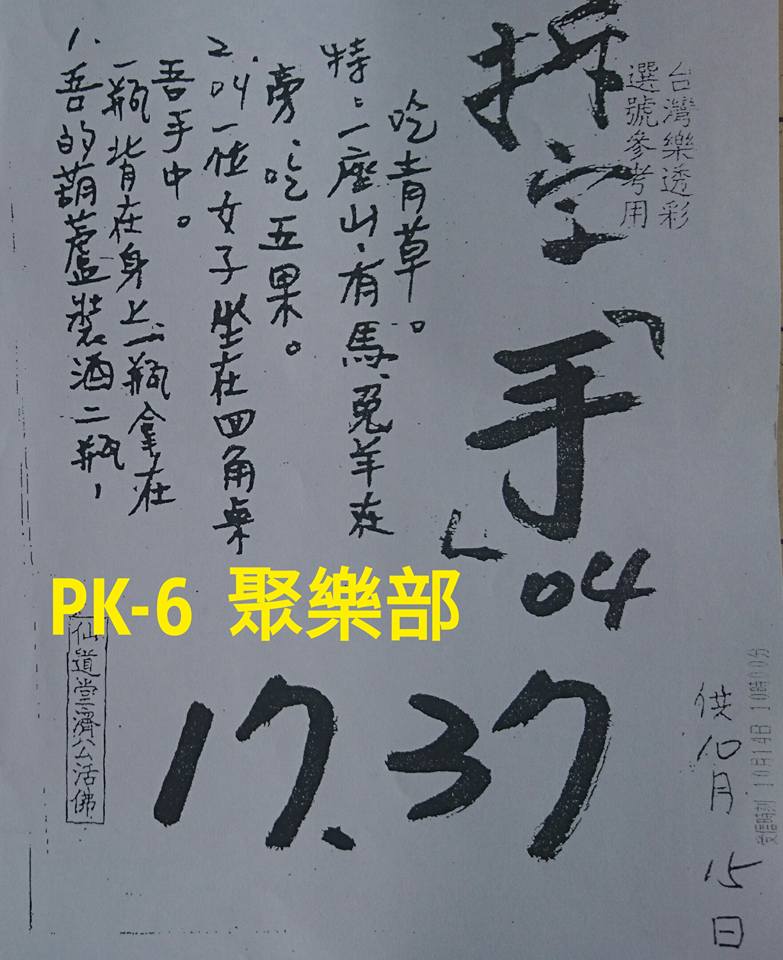 台灣樂透彩
選號參考用
拆字「手」04
17.37
1.吾的葫蘆裝酒二瓶，
一瓶背在身上一瓶拿在
吾手中。
2.叫一位女子坐在四角桌
旁、吃五果。
特：一座山、有馬、兔羊在
吃青草。
PK-6 聚樂部
仙道堂濟公活佛
供10月15日
受信時刻10月14日10時00分